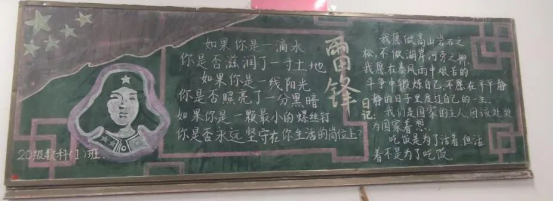 如果你是一滴水
你是否滋润了一寸土地
如果你是一线阳光
你是否照亮了一分黑暗
如果你是一颗最小的螺丝钉
你是否永远坚守在你生活的岗位上?
20级教科(1)班
雷锋
日记:
我愿做高山岩石之
松不做湖岸河旁之柳
我愿在暴风雨中艰苦的
斗争中锻炼自己不愿在平平静
静的日子里度过自己的一生、
我们是国家的主人应该处处
为国家着想.
吃饭是为了活着但活
着不是为了吃饭